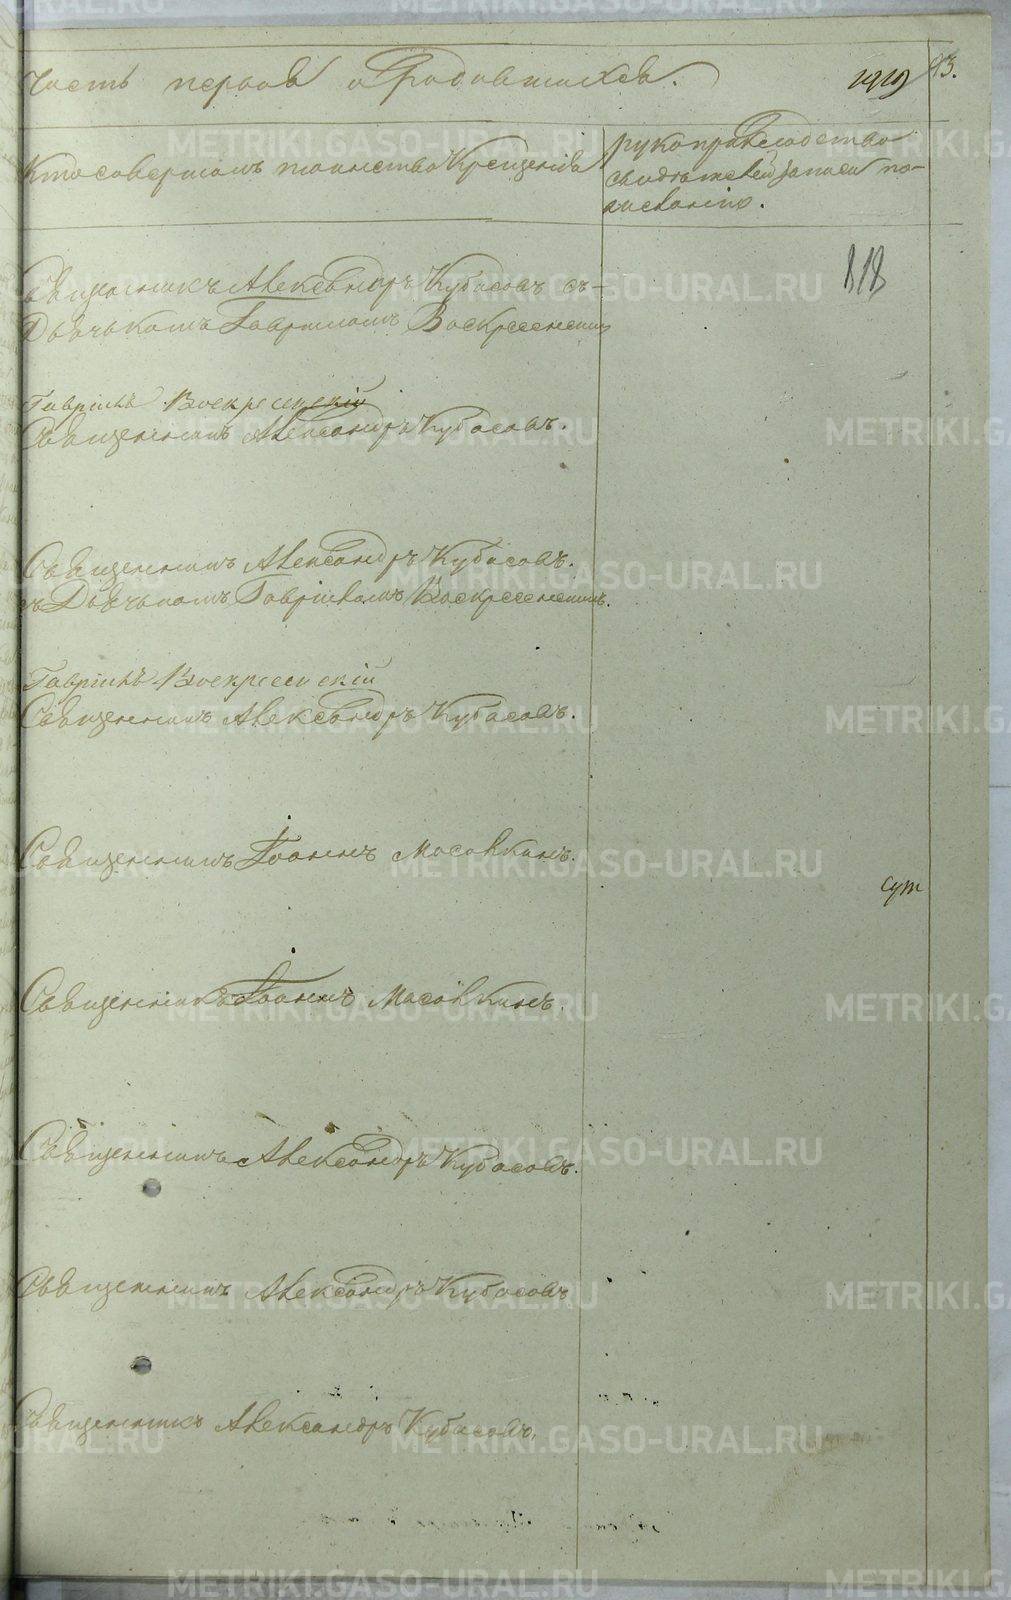 Часть первая о Родившихся. 1919 93.
Кто совершалъ таинство Крещенія
рукоприкладство
свидѣтелей записи по
желанію.
118
Священникъ Александръ Кубасовъ съ
Дьячькомъ Гавріиломъ Воскресенским
Гавріилъ Воскресенскій
Священникъ Александръ Кубасовъ.
Священникъ Александръ Кубасовъ.
съ Дьячькомъ Гавріиломъ Воскресенскимъ.
Гавріилъ Воскресенскій
Священникъ Александръ Кубасовъ.
Священникъ Іоаннъ Масовкинъ.
Священникъ Іоаннъ Масовкинъ.
Священникъ Александръ Кубасовъ.
Священникъ Александръ Кубасовъ
Священникъ Александръ Кубасовъ.
METRIKI.GASO-URAL.RU